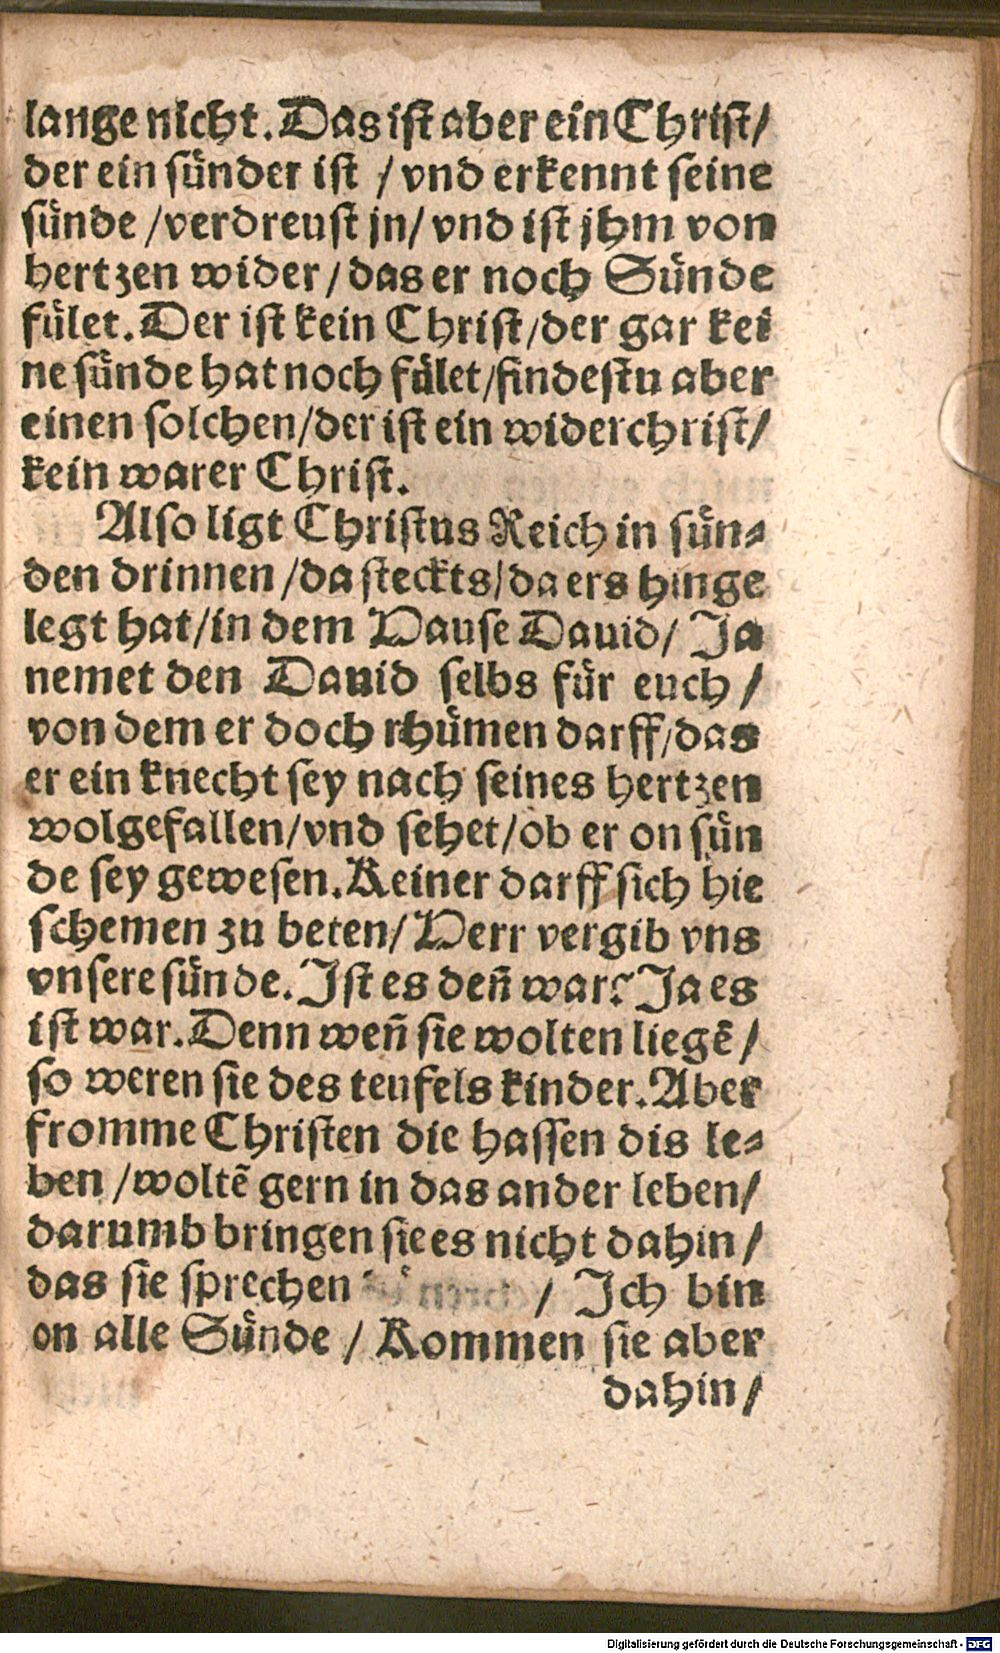 lange nicht. Das ist aber ein Christ/
der ein sünder ist / vnd erkennt seine
sünde /verdreust jn/ vnd ist jhm von
hertzen wider/ das er noch Sünde
fület. Der ist kein Christ/der gar kei
ne sünde hat noch fület/findestu aber
einen solchen/der ist ein widerchrist/
kein warer Christ.
Also ligt Christus Reich in sün⸗
den drinnen /da steckts/da ers hinge
legt hat/in dem Hause Dauid/ Ja
nemet den Dauid selbs für euch /
von dem er doch rhümen darff/das
er ein knecht sey nach seines hertzen
wolgefallen/vnd sehet/ob er on sün
de sey gewesen. Keiner darff sich hie
schemen zu beten/ Herr vergib vns
vnsere sünde. Ist es deñ war? Ja es
ist war. Denn weñ sie wolten liegẽ /
so weren sie des teufels kinder. Aber
fromme Christen die hassen dis le⸗
ben /woltẽ gern in das ander leben/
darumb bringen sie es nicht dahin /
das sie sprechen / Ich bin
on alle Sünde / Kommen sie aber
dahin /
Digitalisierung gefördert durch die Deutsche Forschungsgemeinschaft - DFG